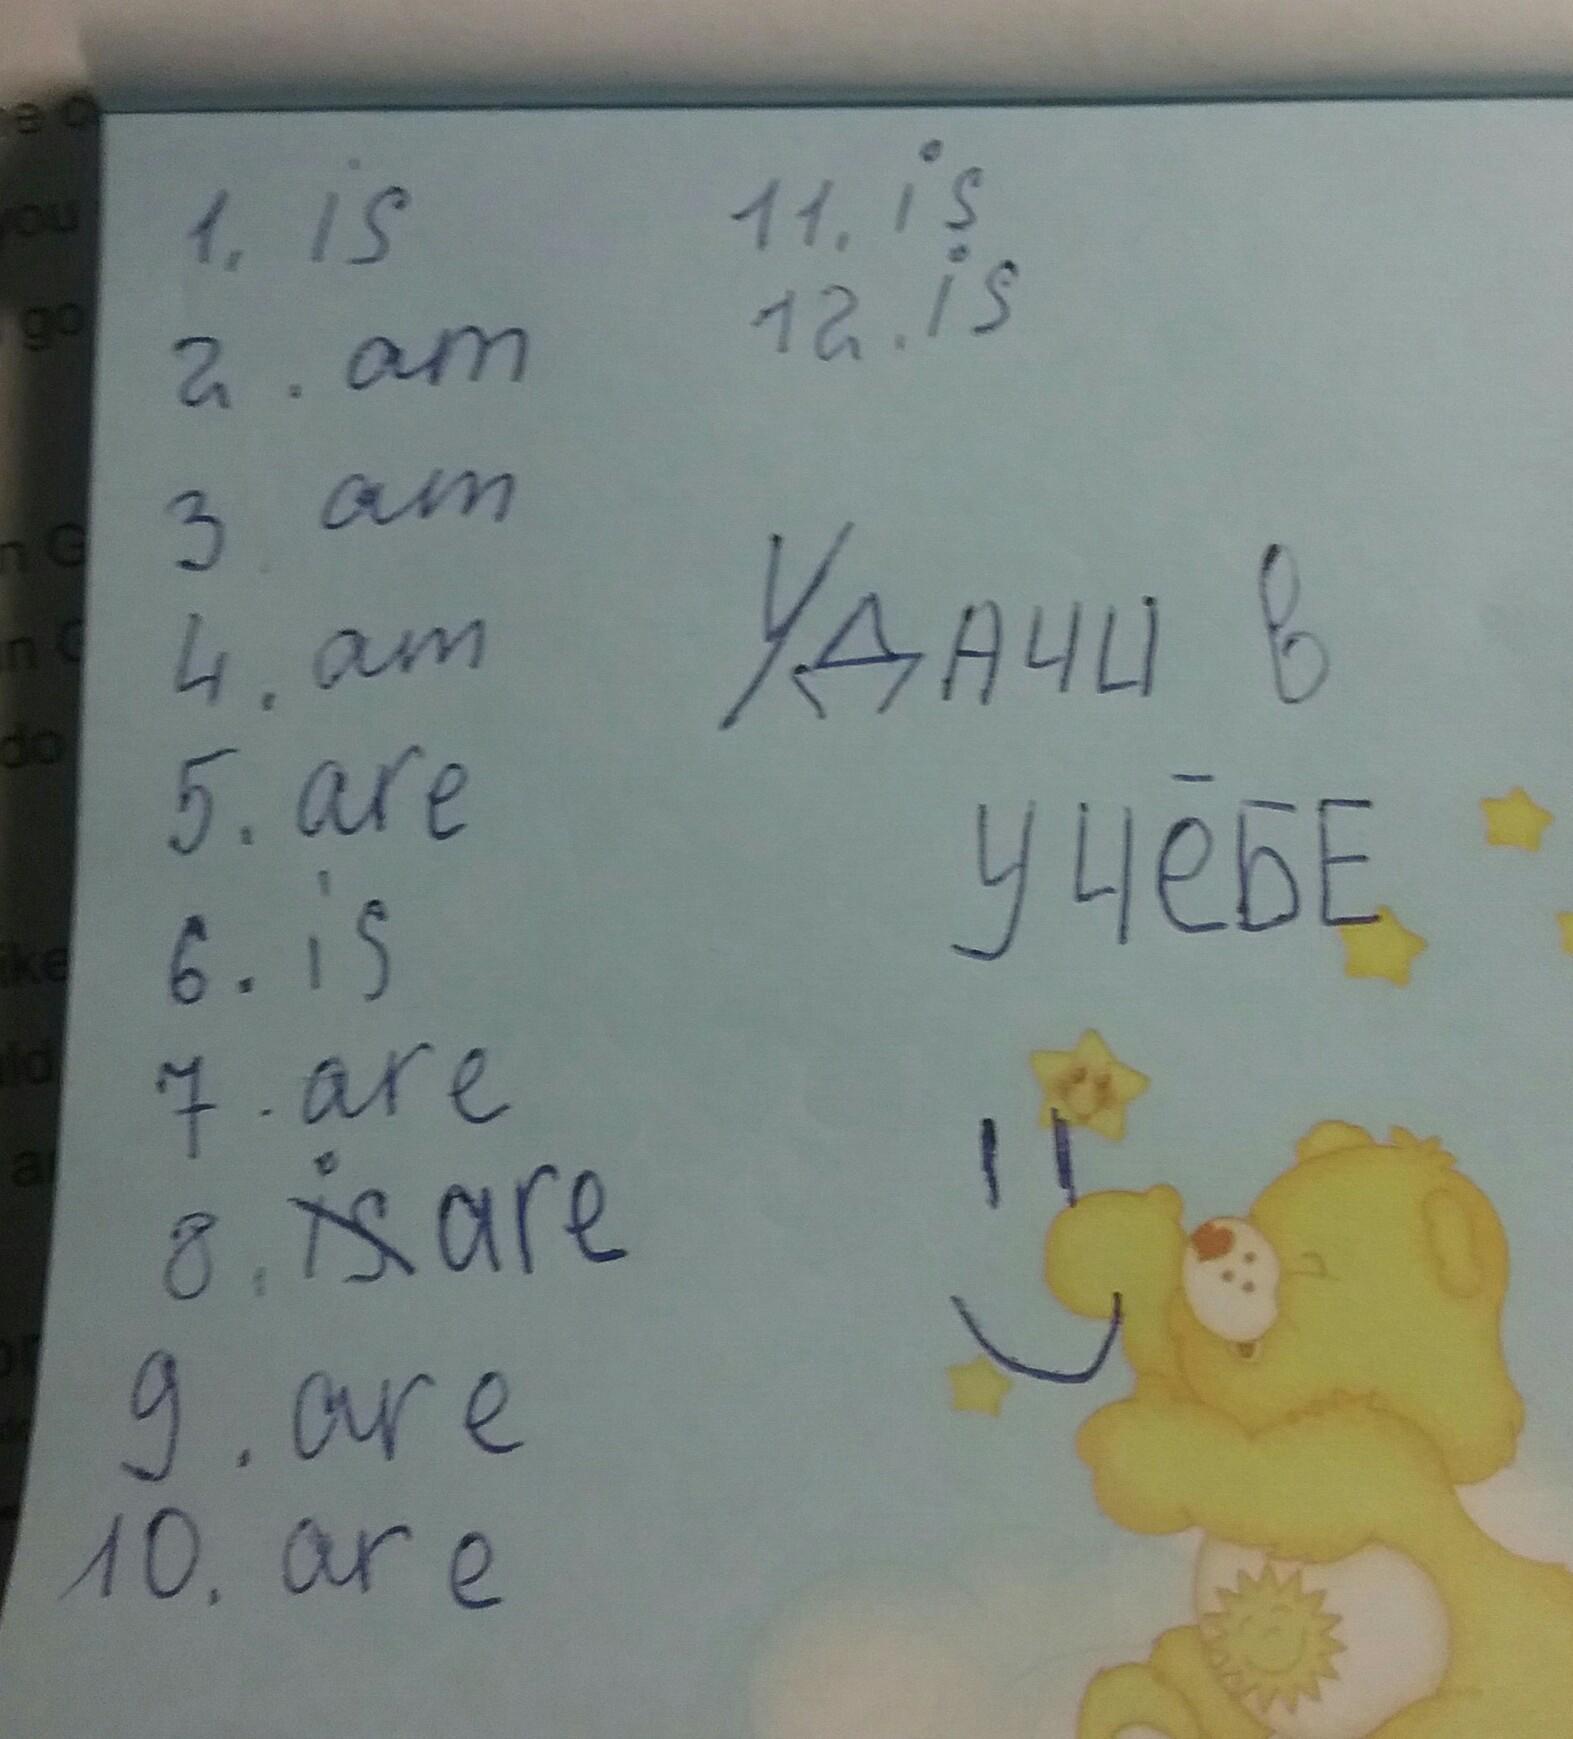 1. is
2. am
3 am
4. am
5. are
6. is
7. are
8. is are
9. are
10. are
11. is
12. is
Удачи в
учёбе
you
go
do